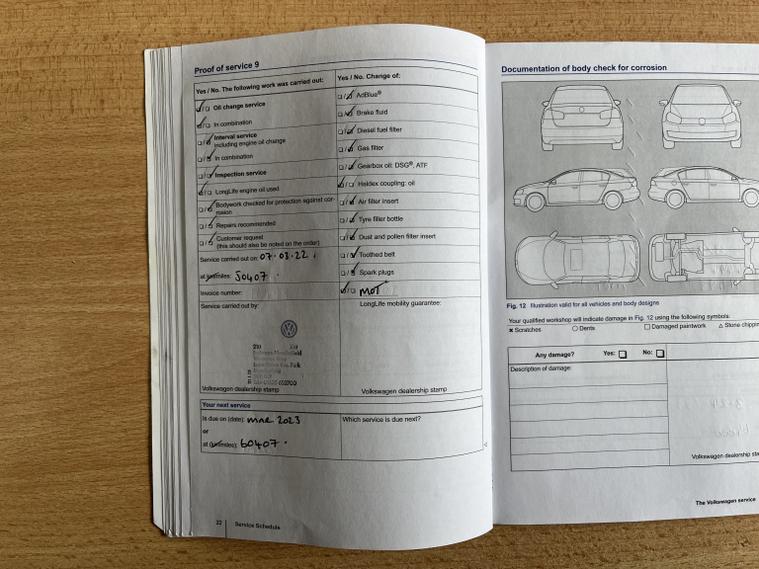 Proof of service 9
Yes / No. The following work was carried out:
Oil change service
In combination
Interval service
including engine oil change
In combination
Inspection service
LongLife engine oil used
Bodywork checked for protection against cor-
rosion
Repairs recommended
Customer request
(this should also be noted on the order)
Service carried out on: 07.03.22
at (km/miles): 50407
Invoice number:
Service carried out by:
Volkswagen dealership stamp
Yes / No. Change of:
AdBlue®
Brake fluid
Diesel fuel filter
Gas filter
Gearbox oil: DSG®, ATF
Haldex coupling: oil
Air filter insert
Tyre filler bottle
Dust and pollen filter insert
Toothed belt
Spark plugs
MOT
LongLife mobility guarantee:
Volkswagen dealership stamp
Your next service
is due on (date): MAR 2023
or
at (km/miles): 60407
Which service is due next?
22 Service Schedule
Documentation of body check for corrosion
Fig. 12 Illustration valid for all vehicles and body designs
Your qualified workshop will indicate damage in Fig. 12 using the following symbols:
× Scratches ○ Dents □ Damaged paintwork △ Stone chippin
Any damage? Yes: □ No: □
Description of damage:
Volkswagen dealership sta
The Volkswagen service